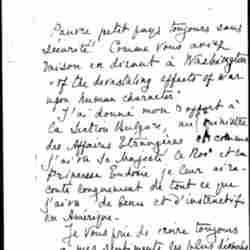 Pauvre petit pays toujours sans
sécurité! Comme vous aviez
raison en disant à Washington
"of the devastating effects of war
upon human character"
J'ai donné mon rapport à
la Section Bulgare, au ministre
des Affaires Etrangères et comme
j'ai vu Sa Majesté le Roi et la
Princesse Eudoxie je leur ai ra-
conté longuement de tout ce que
j'ai vu de beau et d'instructif
en Amerique.
Je vous prie de croire toujours
mes sentiments les plus